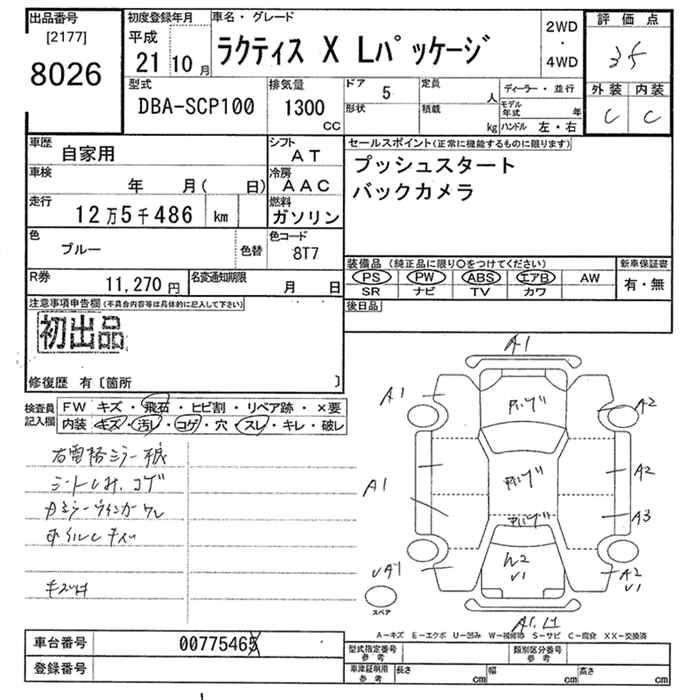 出品番号
[2177]
8026
初度登録年月
平成
21 10 月
車名・グレード
ラクティス X Lパッケージ
2WD
・
4WD
評価点
35
外装 内装
C C
型式
DBA-SCP100
排気量
1300
CC
ドア 5
形状
定員
人
積載
kg
ディーラー・並行
モデル年式 年
ハンドル 左・右
車歴
自家用
シフト
AT
車検
年 月( 日)
冷房
AAC
走行
12万5千486 km
燃料
ガソリン
色
ブルー
色替
色コード
8T7
R券
11,270 円
名変通知期限
月 日
セールスポイント(正常に機能するものに限ります)
プッシュスタート
バックカメラ
装備品 (純正品に限り○をつけてください)
PS PW ABS エアB AW
SR ナビ TV カワ
新車保証書
有・無
後日品
注意事項申告欄(不具合内容等は具体的に記入して下さい)
初出品
修復歴 有〔箇所 〕
検査員
記入欄
FW キズ・飛石・ヒビ割・リペア跡・×要
内装 キズ・汚レ・コゲ・穴・スレ・キレ・破レ
シートしみ、コゲ
A1
A1
A2
A1
A2
A3
A2
V1
V1
スペア
A-キズ E-エクボ U-凹み W-補修跡 S-サビ C-腐食 XX-交換済
車台番号
登録番号
型式指定番号
参考
類別区分番号
参考
車庫証明用
参考
長さ cm
幅 cm
高さ cm